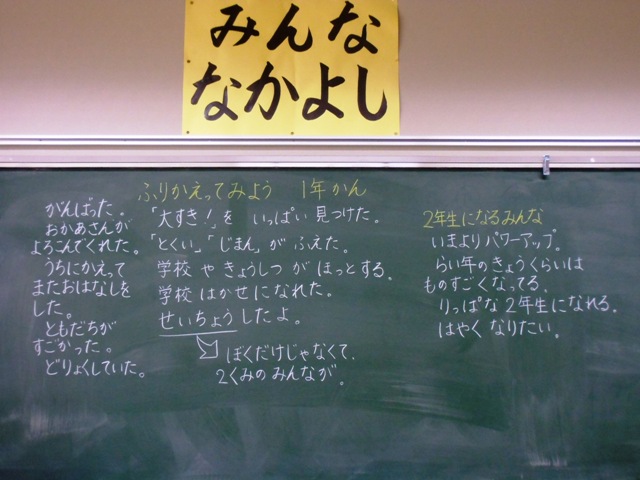 みんな
なかよし
ふりかえってみよう 1年かん
がんばった。
おかあさんが
よろこんでくれた。
うちにかえって
またおはなしを
した。
ともだちが
すごかった。
どりょくしていた。
「大すき!」を いっぱい 見つけた。
「とくい」「じまん」が ふえた。
学校 や きょうしつ が ほっとする。
学校 はかせ になれた。
せいちょう したよ。
ぼくだけじゃなくて、
2くみの みんなが。
2年生になるみんな
いまよりパワーアップ。
らい年のきょうくらいは
ものすごくなってる。
りっぱな 2年生になれる。
はやく なりたい。